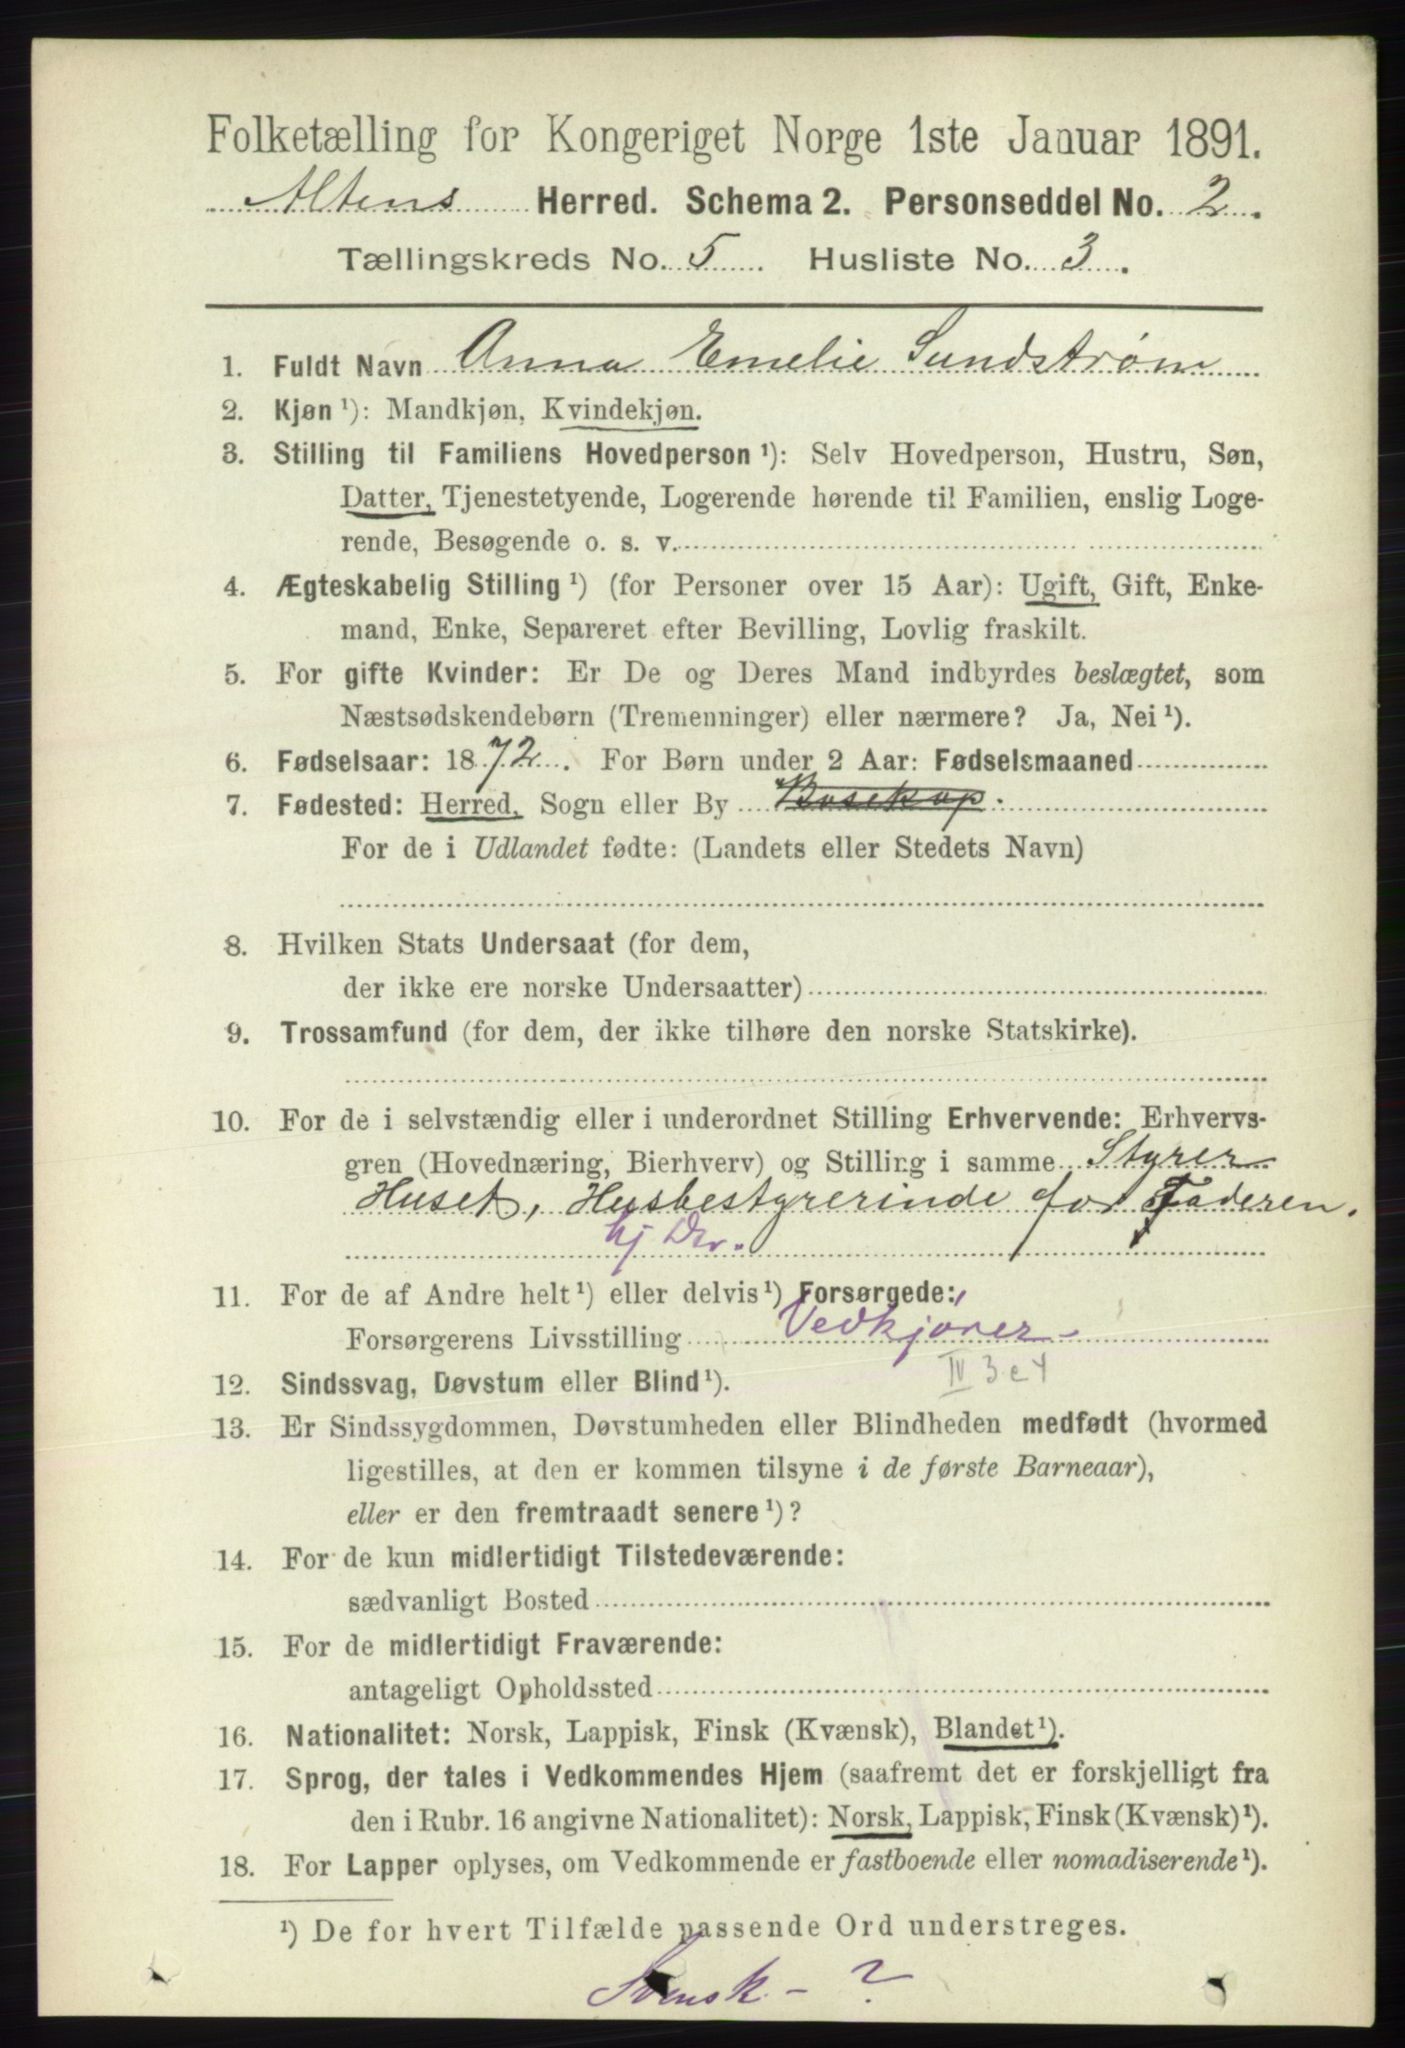 Folketælling for Kongeriget Norge 1ste Januar 1891.
Altens Herred. Schema 2. Personseddel No. 2.
Tællingskreds No. 5 Husliste No. 3.
1. Fuldt Navn Anna Emelie Sundstrøm
2. Kjøn ¹): Mandkjøn, Kvindekjøn.
3. Stilling til Familiens Hovedperson ¹): Selv Hovedperson, Hustru, Søn,
Datter, Tjenestetyende, Logerende hørende til Familien, enslig Loge-
rende, Besøgende o. s. v.
4. Ægteskabelig Stilling ¹) (for Personer over 15 Aar): Ugift, Gift, Enke-
mand, Enke, Separeret efter Bevilling, Lovlig fraskilt.
5. For gifte Kvinder: Er De og Deres Mand indbyrdes beslægtet, som
Næstsødskendebørn (Tremenninger) eller nærmere? Ja, Nei ¹).
6. Fødselsaar: 1872. For Børn under 2 Aar: Fødselsmaaned
7. Fødested: Herred, Sogn eller By Bosekop.
For de i Udlandet fødte: (Landets eller Stedets Navn)
8. Hvilken Stats Undersaat (for dem,
der ikke ere norske Undersaatter)
9. Trossamfund (for dem, der ikke tilhøre den norske Statskirke).
10. For de i selvstændig eller i underordnet Stilling Erhvervende: Erhvervs-
gren (Hovednæring, Bierhverv) og Stilling i samme Styrer
Huset, Husbestyrerinde for Faderen.
hj Dr.
11. For de af Andre helt ¹) eller delvis ¹) Forsørgede:
Forsørgerens Livsstilling Vedkjører
IV 3 e 4
12. Sindssvag, Døvstum eller Blind ¹).
13. Er Sindssygdommen, Døvstumheden eller Blindheden medfødt (hvormed
ligestilles, at den er kommen tilsyne i de første Barneaar),
eller er den fremtraadt senere ¹)?
14. For de kun midlertidigt Tilstedeværende:
sædvanligt Bosted
15. For de midlertidigt Fraværende:
antageligt Opholdssted
16. Nationalitet: Norsk, Lappisk, Finsk (Kvænsk), Blandet ¹).
17. Sprog, der tales i Vedkommendes Hjem (saafremt det er forskjelligt fra
den i Rubr. 16 angivne Nationalitet): Norsk, Lappisk, Finsk (Kvænsk) ¹).
18. For Lapper oplyses, om Vedkommende er fastboende eller nomadiserende ¹).
¹) De for hvert Tilfælde passende Ord understreges.
Svensk - ?